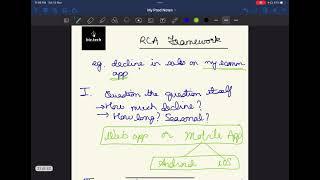 My Prod Notes
biz.tech
RCA Framework
eg. decline in sales on my ecomm
app
I. Question the question itself
→ How much decline?
→ How long? Seasonal?
Web app or Mobile App
Android iOS